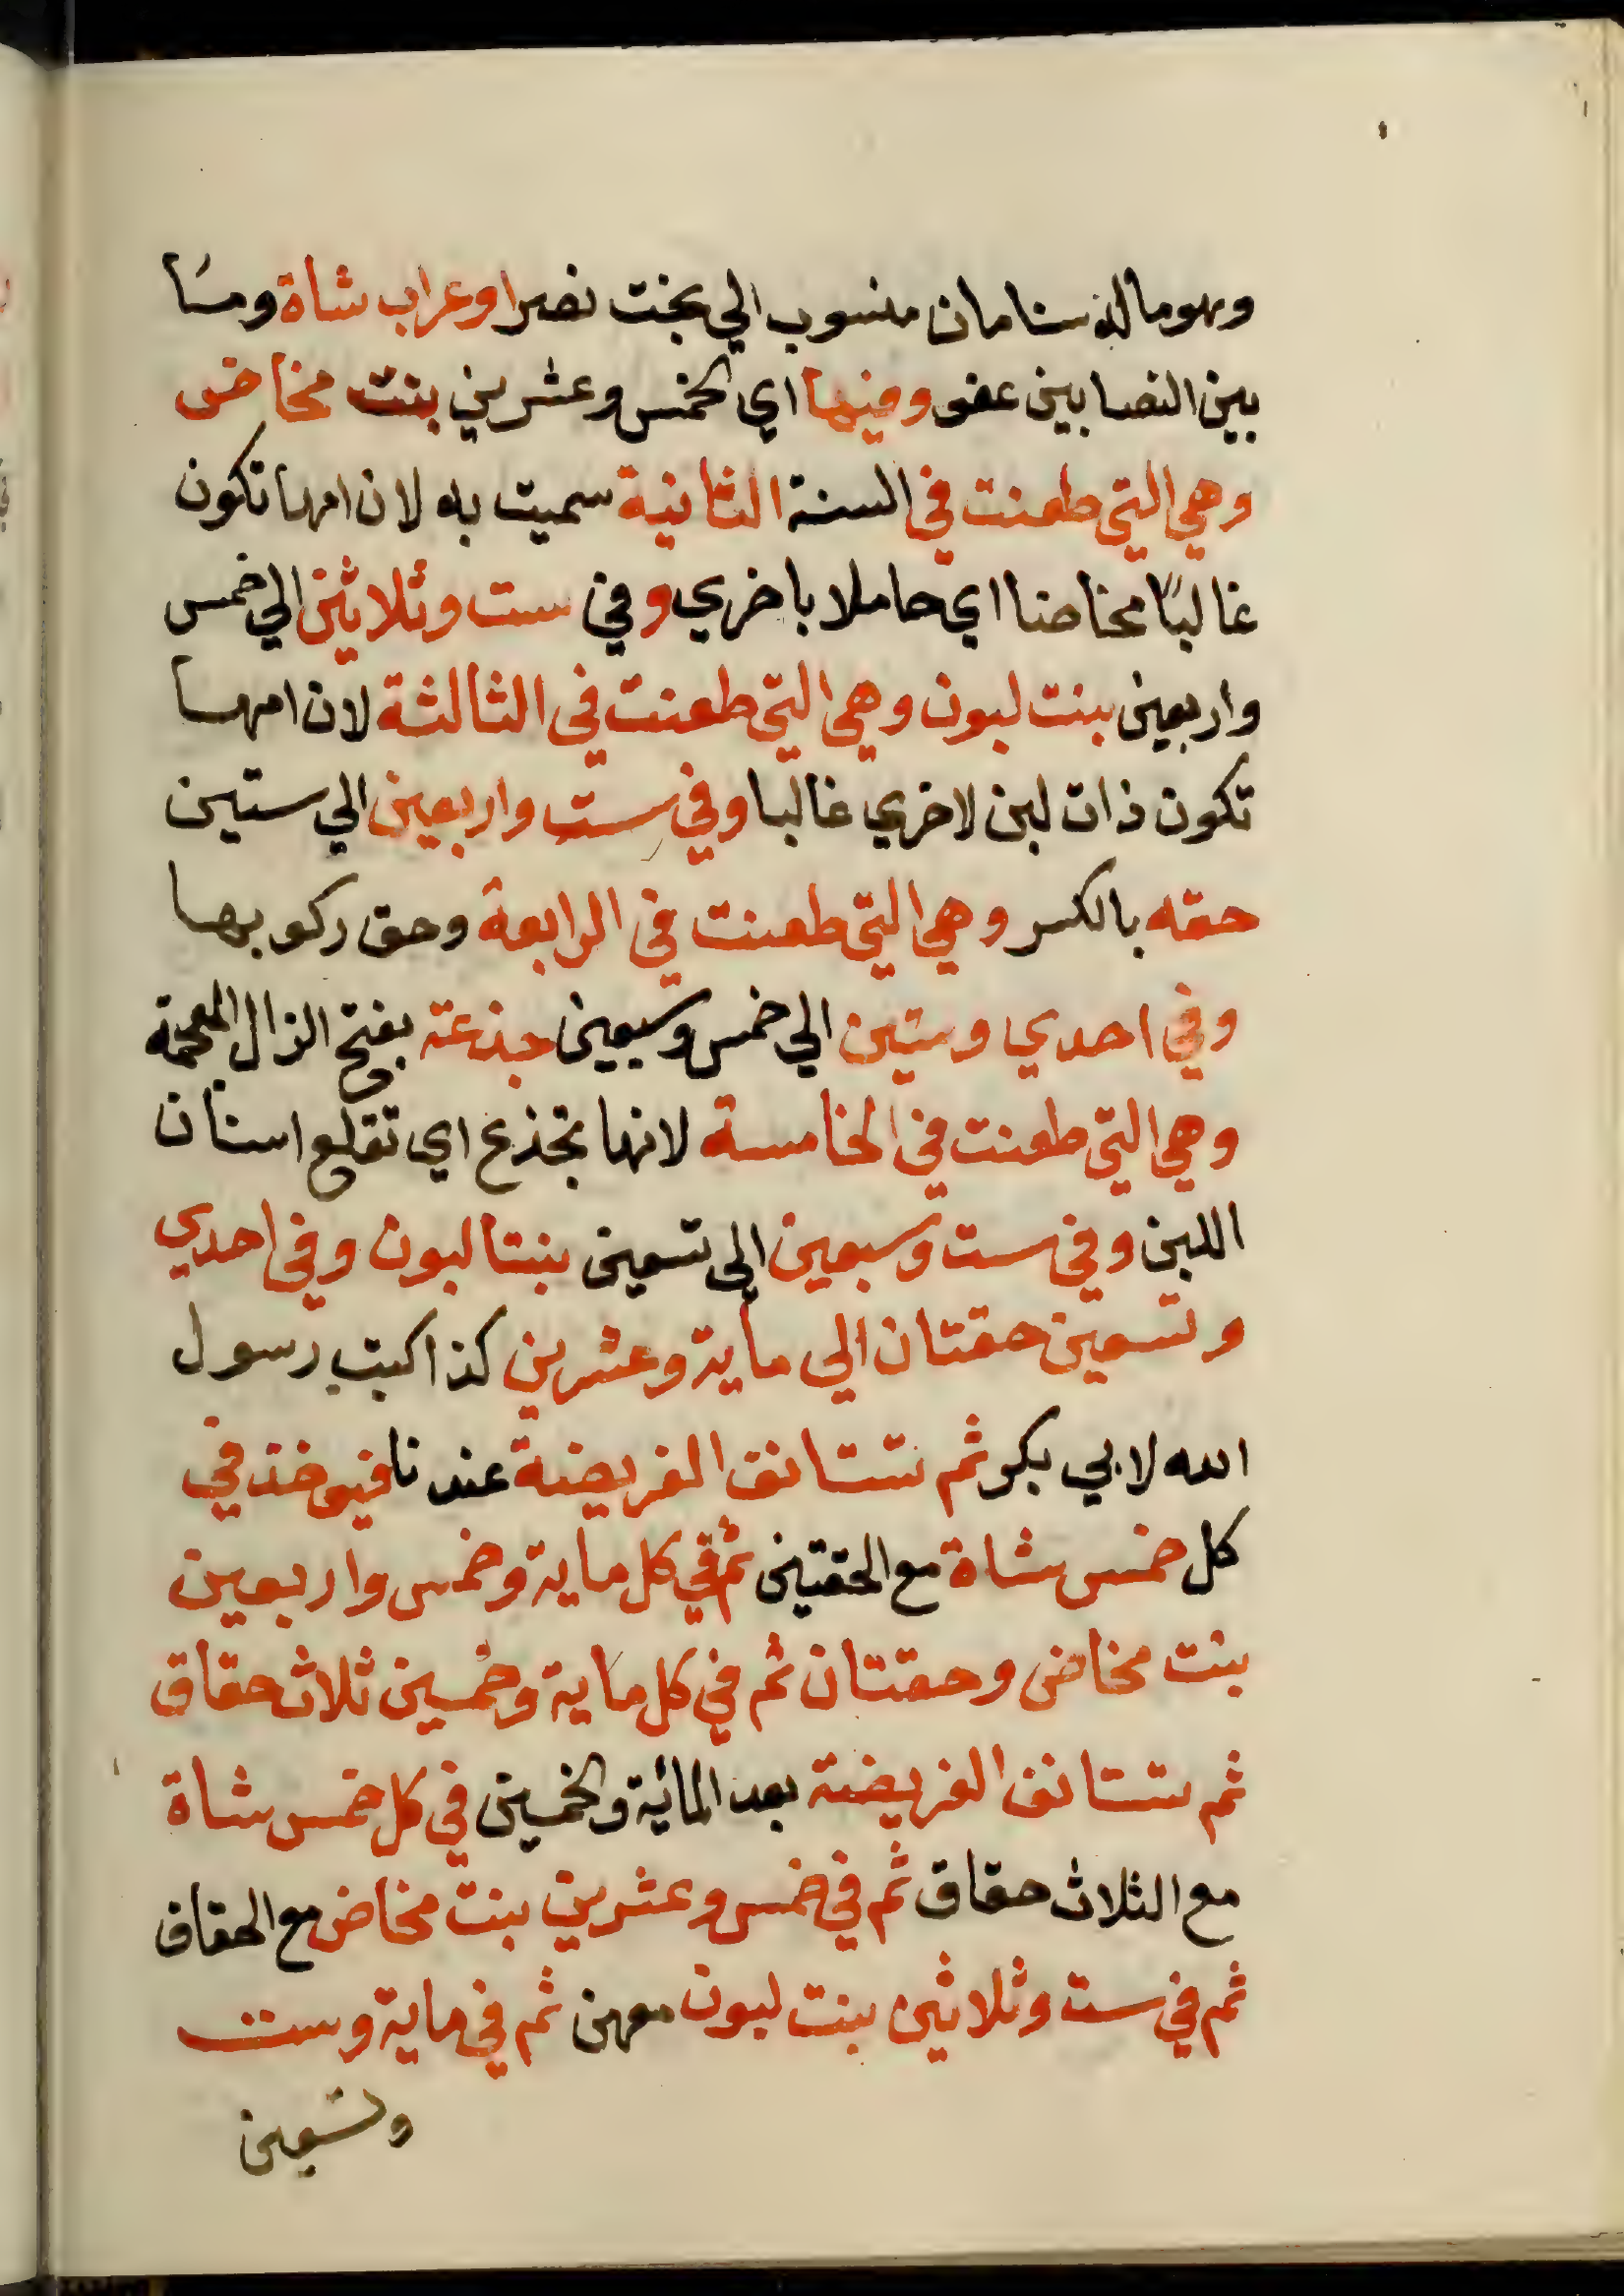 وهو ماله سنامان منسوب الي بخت نصر او عراب شاة وما
بين النصابين عفو وفيها اي الخمس وعشرين بنت مخاض
وهي التي طعنت في السنة الثانية سميت به لان امها تكون
غالبًا مخاضا اي حاملا باخري وفي ست وثلاثين الي خمس
واربعين بنت لبون وهي التي طعنت في الثالثة لان امها
تكون ذات لبن لاخري غالبا وفي ست واربعين الي ستين
حقه بالكسر وهي التي طعنت في الرابعة وحق ركوبها
وفي احدي وستين الي خمس وسبعين جذعة بفتح الذال المعجمة
وهي التي طعنت في الخامسة لانها تجذع اي تقلع اسنان
اللبن وفي ست وسبعين الي تسعين بنتا لبون وفي احدي
وتسعين حقتان الي ماية وعشرين كذا كتب رسول
الله لابي بكر ثم تستانف الفريضة عندنا فيوخذ في
كل خمس شاة مع الحقتين ثم في كل ماية وخمس واربعين
بنت مخاض وحقتان ثم في كل ماية وخمسين ثلاث حقاق
ثم تستانف الفريضة بعد المائة والخمسين في كل خمس شاة
مع الثلاث حقاق ثم في خمس وعشرين بنت مخاض مع الحقاق
ثم في ست وثلاثين بنت لبون معهن ثم في ماية وست
وتسعين